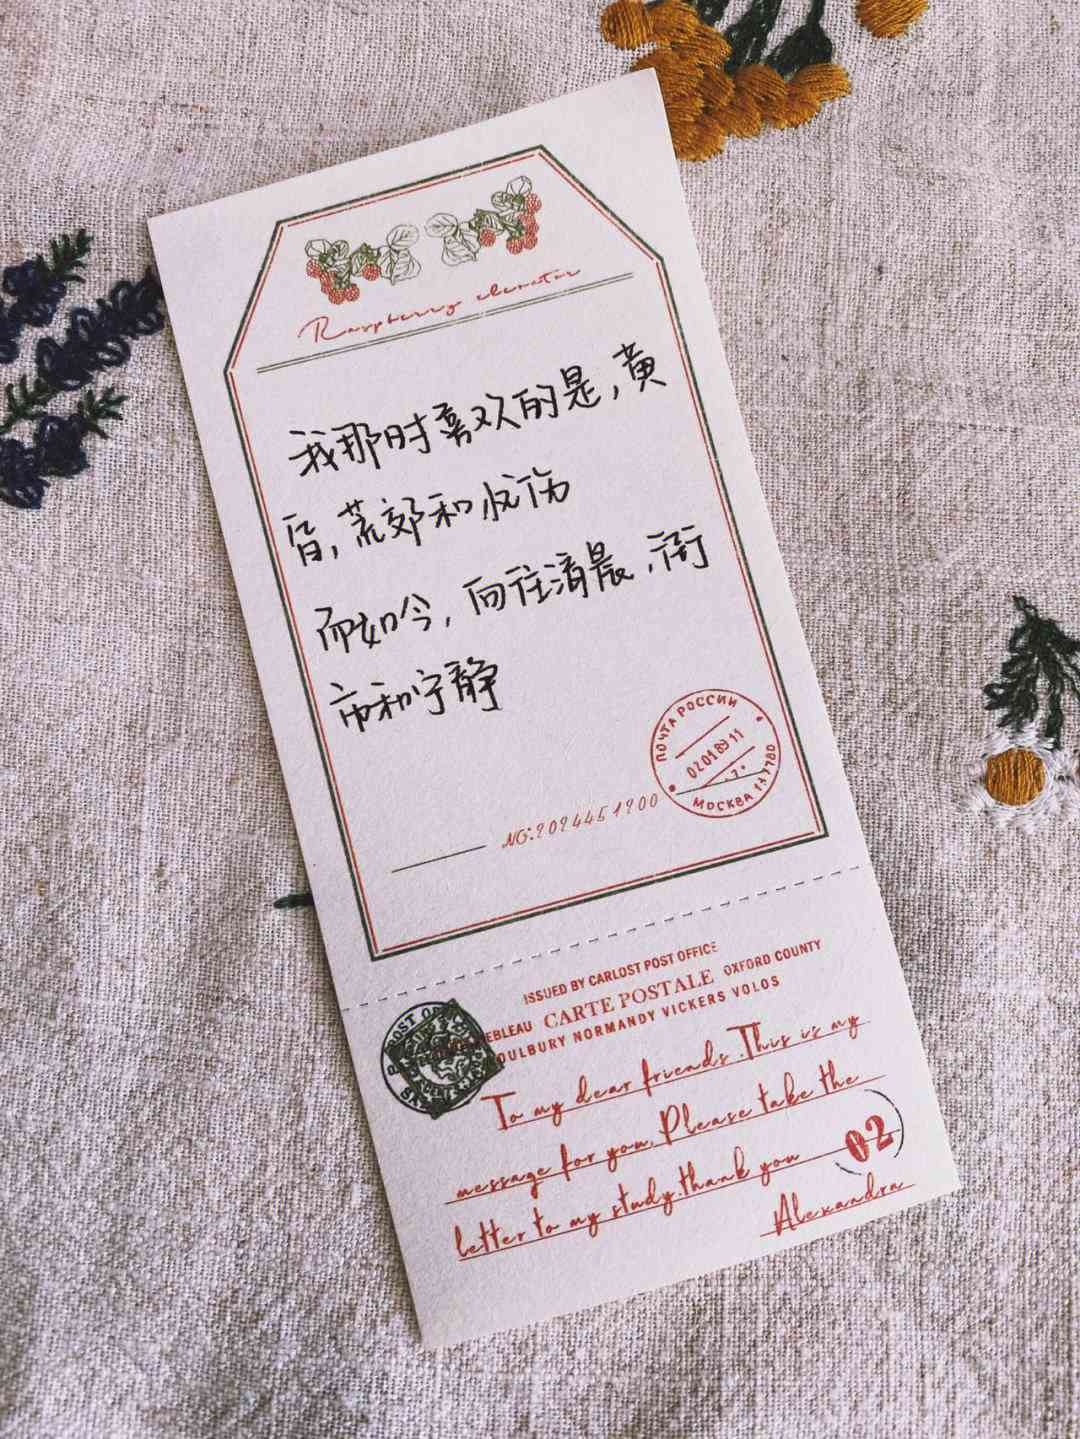 Raspberry elevator
我那时喜欢的是,黄
昏,荒郊和忧伤
而如今,向往清晨,街
市和宁静
ПОЧТА РОССИИ
02018911
.7.
МОСКВА 137780
NO:2024451900
ISSUED BY CARLOST POST OFFICE
CARTE POSTALE OXFORD COUNTY
EBLEAU
OULBURY NORMANDY VICKERS VOLOS
To my dear friends.This is my
message for you.Please take the
02
letter to my study.thank you
Alexandra